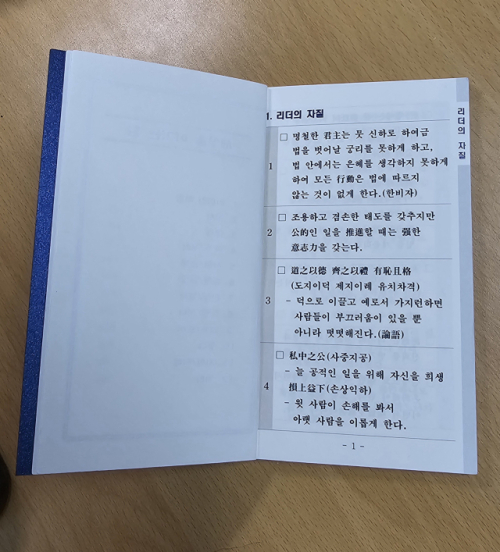 1. 리더의 자질
리더의 자질
1
□ 명철한 君主는 뭇 신하로 하여금
법을 벗어날 궁리를 못하게 하고,
법 안에서는 은혜를 생각하지 못하게
하여 모든 行動은 법에 따르지
않는 것이 없게 한다.(한비자)
2
□ 조용하고 겸손한 태도를 갖추지만
公的인 일을 推進할 때는 强한
意志力을 갖는다.
3
□ 道之以德 齊之以禮 有恥且格
(도지이덕 제지이례 유치차격)
- 덕으로 이끌고 예로서 가지런하면
사람들이 부끄러움이 있을 뿐
아니라 떳떳해진다.(論語)
4
□ 私中之公(사중지공)
- 늘 공적인 일을 위해 자신을 희생
損上益下(손상익하)
- 윗 사람이 손해를 봐서
아랫 사람을 이롭게 한다.
- 1 -